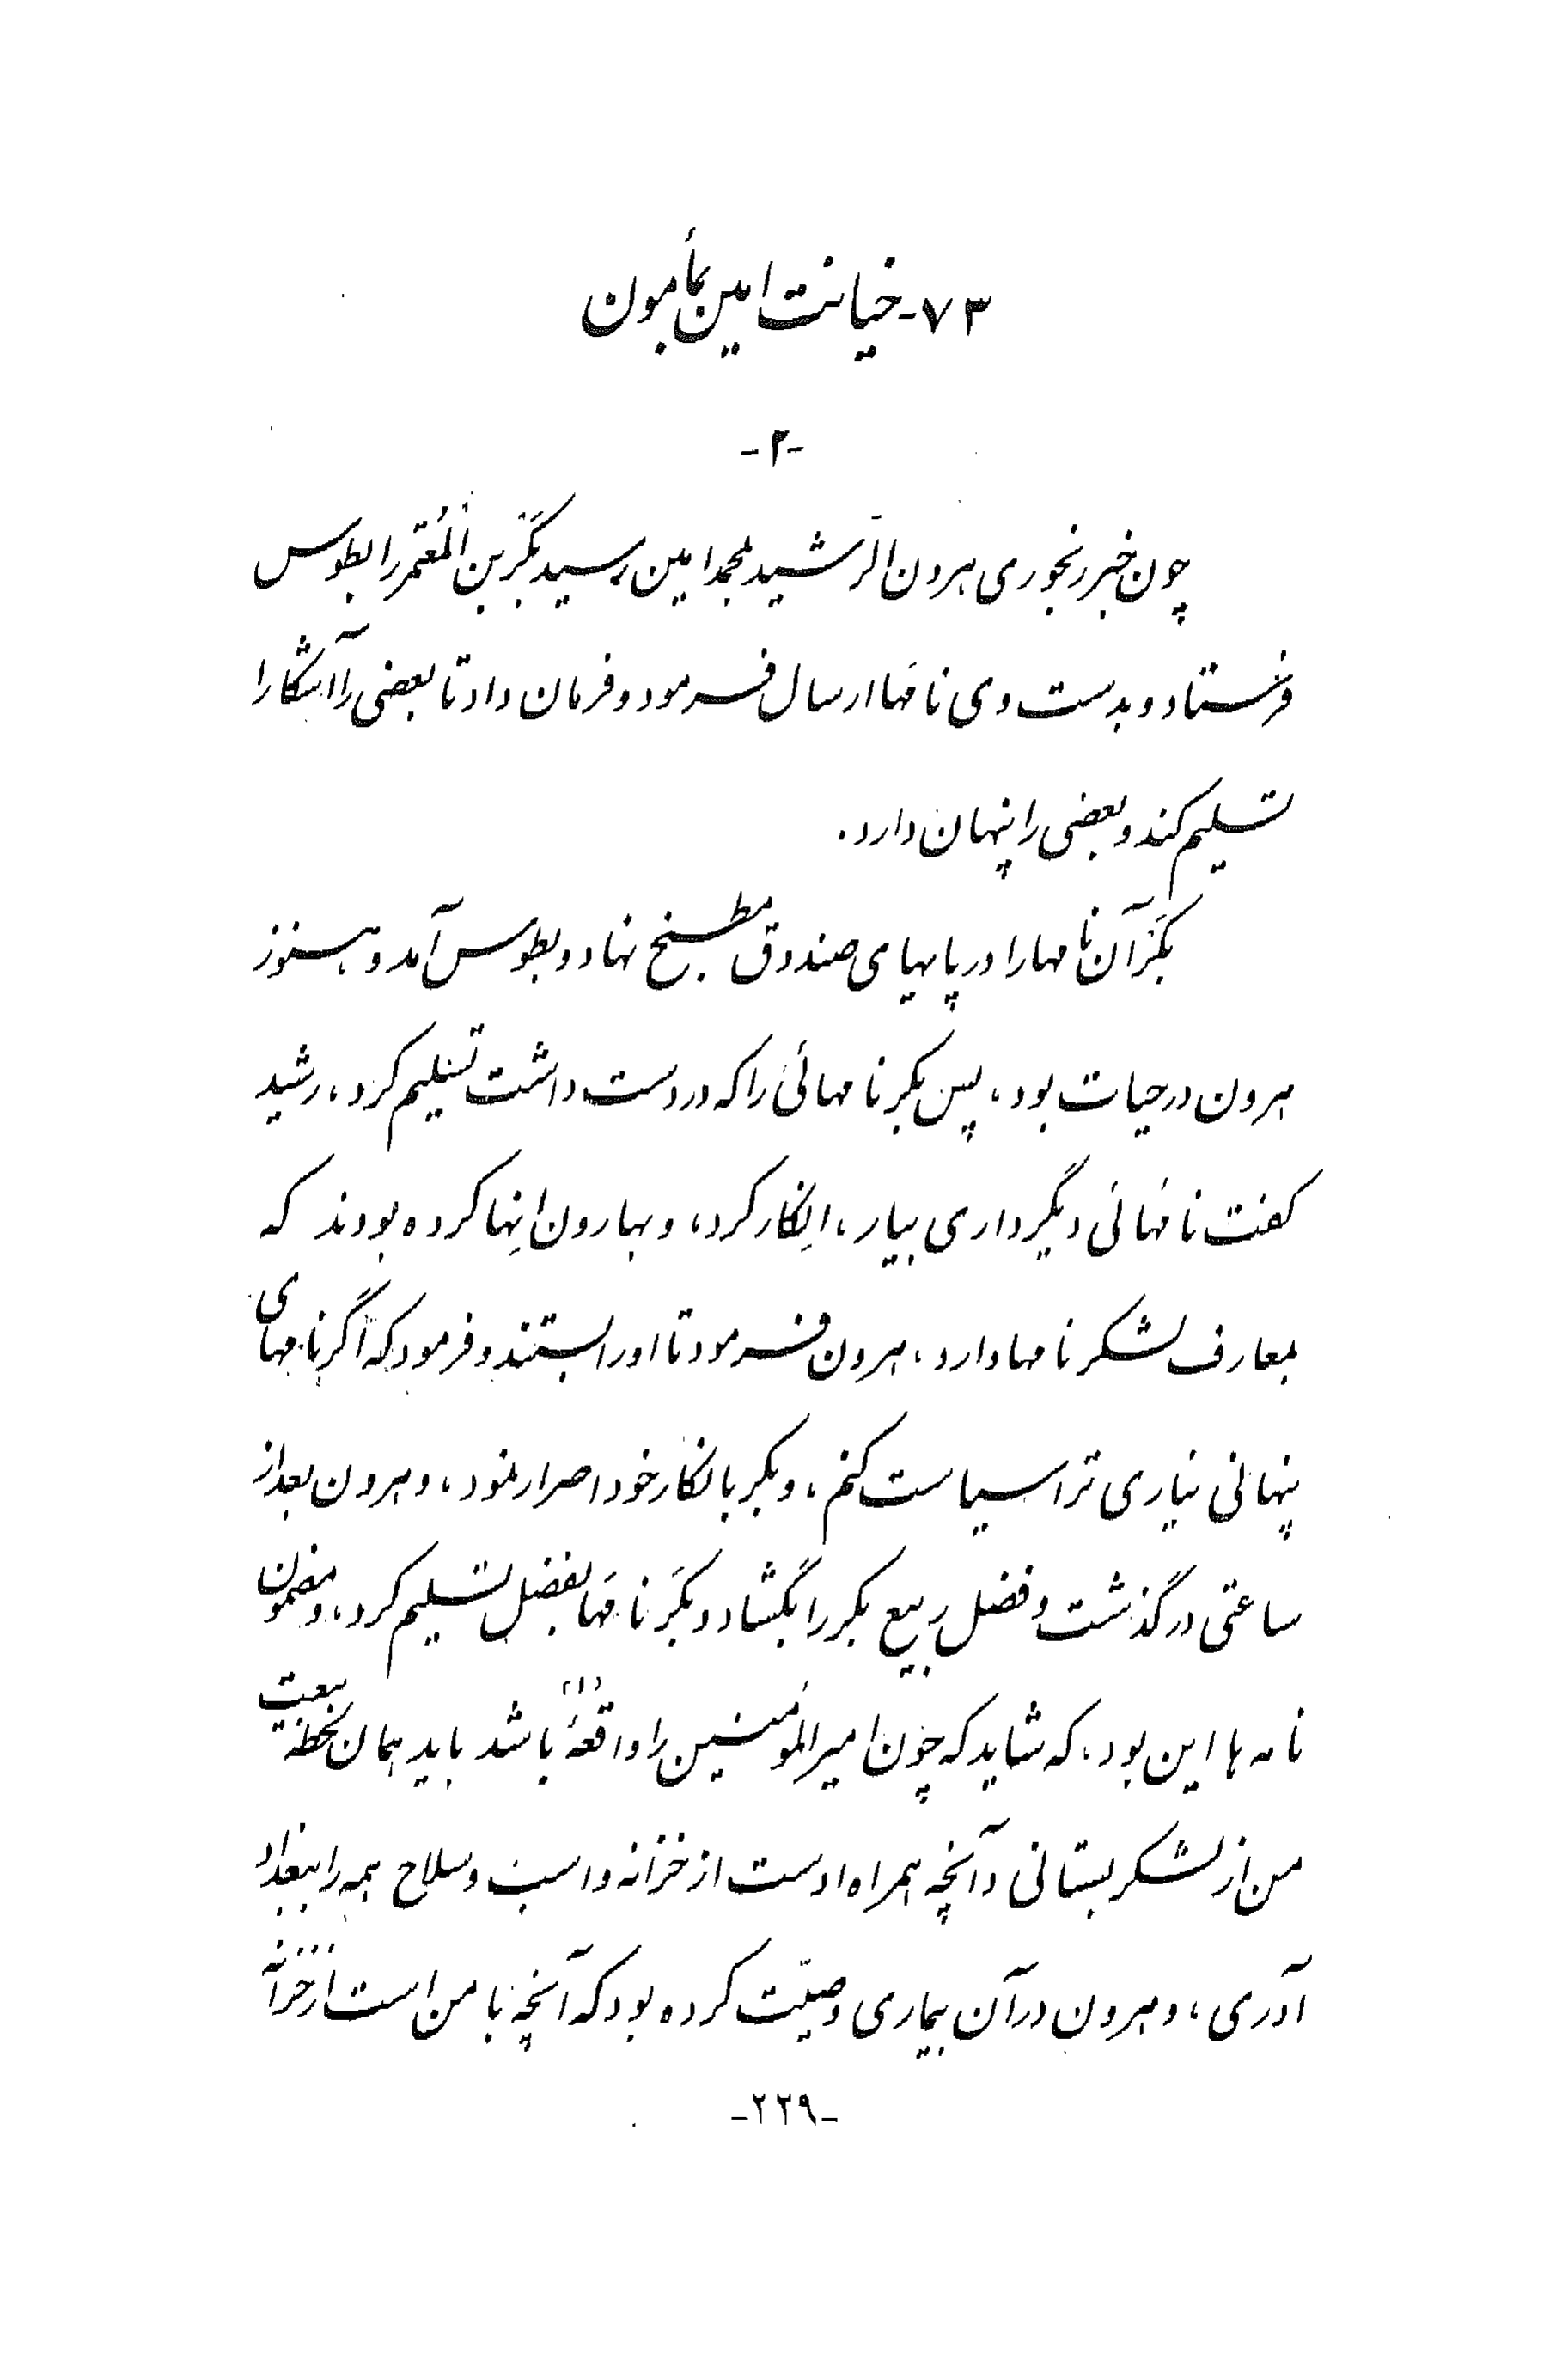 ۷۳- خیانت امین بمأمون
-۲-
چون خبر رنجوری هرون الرّشید بمحمد امین رسید بَکْرِبن المُعْتَمِر را بطوس
فرستاد و بدست وی نامها ارسال فرمود و فرمان داد تا بعضی را آشکارا
تسلیم کند و بعضی را پنهان دارد.
بَکْر آن نامها را در پایهای صندوق مطبخ نهاد و بطوس آمد و هنوز
هرون در حیات بود، پس بکر نامهائی را که در دست داشت تسلیم کرد، رشید
گفت نامهائی دیگر داری بیار، اِنکار کرد، و بهارون اِنها کرده بودند که
بمعارف لشکر نامها دارد، هرون فرمود تا او را ببستند و فرمود که اگر نامهای
پنهانی نیاری ترا سیاست کنم، و بکر بانکار خود اصرار نمود، و هرون بعد از
ساعتی درگذشت و فضل ربیع بکر را بگشاد و بَکر نامها بفضل تسلیم کرد، و مضمون
نامه ها این بود، که شاید که چون امیرالمؤمنین را واقعهٔ (۱) باشد باید همان لحظه بیعت
من از لشکر بستانی و آنچه همراه اوست از خزانه و اسب و سلاح همه را ببغداد
آوری، و هرون در آن بیماری وصیّت کرده بود که آنچه با من است از خزانه
-۲۲۹-